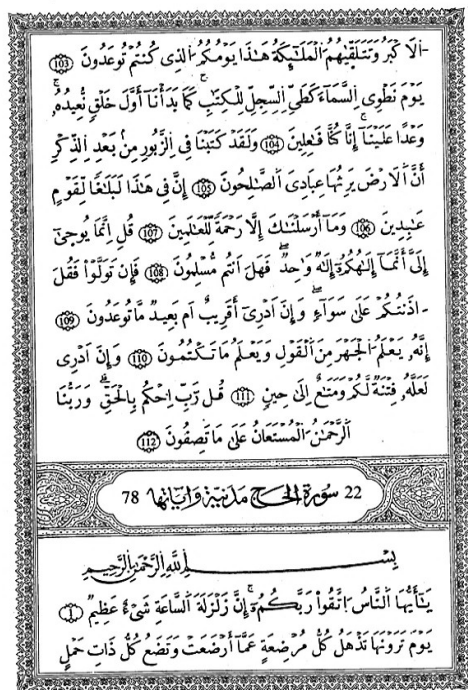 اَلَاكْبَرُ وَتَتَلَقّٰيهُمُ الْمَلَٰٓئِكَةُ هَٰذَا يَوْمُكُمُ الذِي كُنتُمْ تُوعَدُونَ 103
يَوْمَ نَطْوِي السَّمَآءَ كَطَيِّ السِّجِلِّ لِلْكِتَٰبِ كَمَا بَدَأْنَآ أَوَّلَ خَلْقٍ نُّعِيدُهُۥ
وَعْدًا عَلَيْنَآ إِنَّا كُنَّا فَٰعِلِينَ 104 وَلَقَدْ كَتَبْنَا فِي الزَّبُورِ مِنۢ بَعْدِ الذِّكْرِ
أَنَّ اَلَارْضَ يَرِثُهَا عِبَادِيَ الصَّٰلِحُونَ 105 إِنَّ فِي هَٰذَا لَبَلَٰغًا لِّقَوْمٍ
عَٰبِدِينَ 106 وَمَآ أَرْسَلْنَٰكَ إِلَّا رَحْمَةً لِّلْعَٰلَمِينَ 107 قُلِ اِنَّمَا يُوحَىٰٓ
إِلَيَّ أَنَّمَآ إِلَٰهُكُمُۥٓ إِلَٰهٌ وَٰحِدٌ فَهَلَ اَنتُم مُّسْلِمُونَ 108 فَإِن تَوَلَّوْاْ فَقُلَ
اٰذَنتُكُمْ عَلَىٰ سَوَآءٍ وَإِنَ اَدْرِيٓ أَقَرِيبٌ اَم بَعِيدٌ مَّا تُوعَدُونَ 109
إِنَّهُۥ يَعْلَمُ الْجَهْرَ مِنَ اَلْقَوْلِ وَيَعْلَمُ مَا تَكْتُمُونَ 110 وَإِنَ اَدْرِي
لَعَلَّهُۥ فِتْنَةٌ لَّكُمْ وَمَتَٰعٌ اِلَىٰ حِينٍ 111 قُل رَّبِّ اِحْكُم بِالْحَقِّ وَرَبُّنَا
اَلرَّحْمَٰنُ الْمُسْتَعَانُ عَلَىٰ مَا تَصِفُونَ 112
22 سورة الحج مدنية وآياتها 78
بِسْمِ اِللَّهِ اِلرَّحْمَٰنِ اِلرَّحِيمِ
يَٰٓأَيُّهَا اَلنَّاسُ اُتَّقُواْ رَبَّكُمُۥٓ إِنَّ زَلْزَلَةَ اَلسَّاعَةِ شَيْءٌ عَظِيمٌ 1
يَوْمَ تَرَوْنَهَا تَذْهَلُ كُلُّ مُرْضِعَةٍ عَمَّآ أَرْضَعَتْ وَتَضَعُ كُلُّ ذَاتِ حَمْلٍ